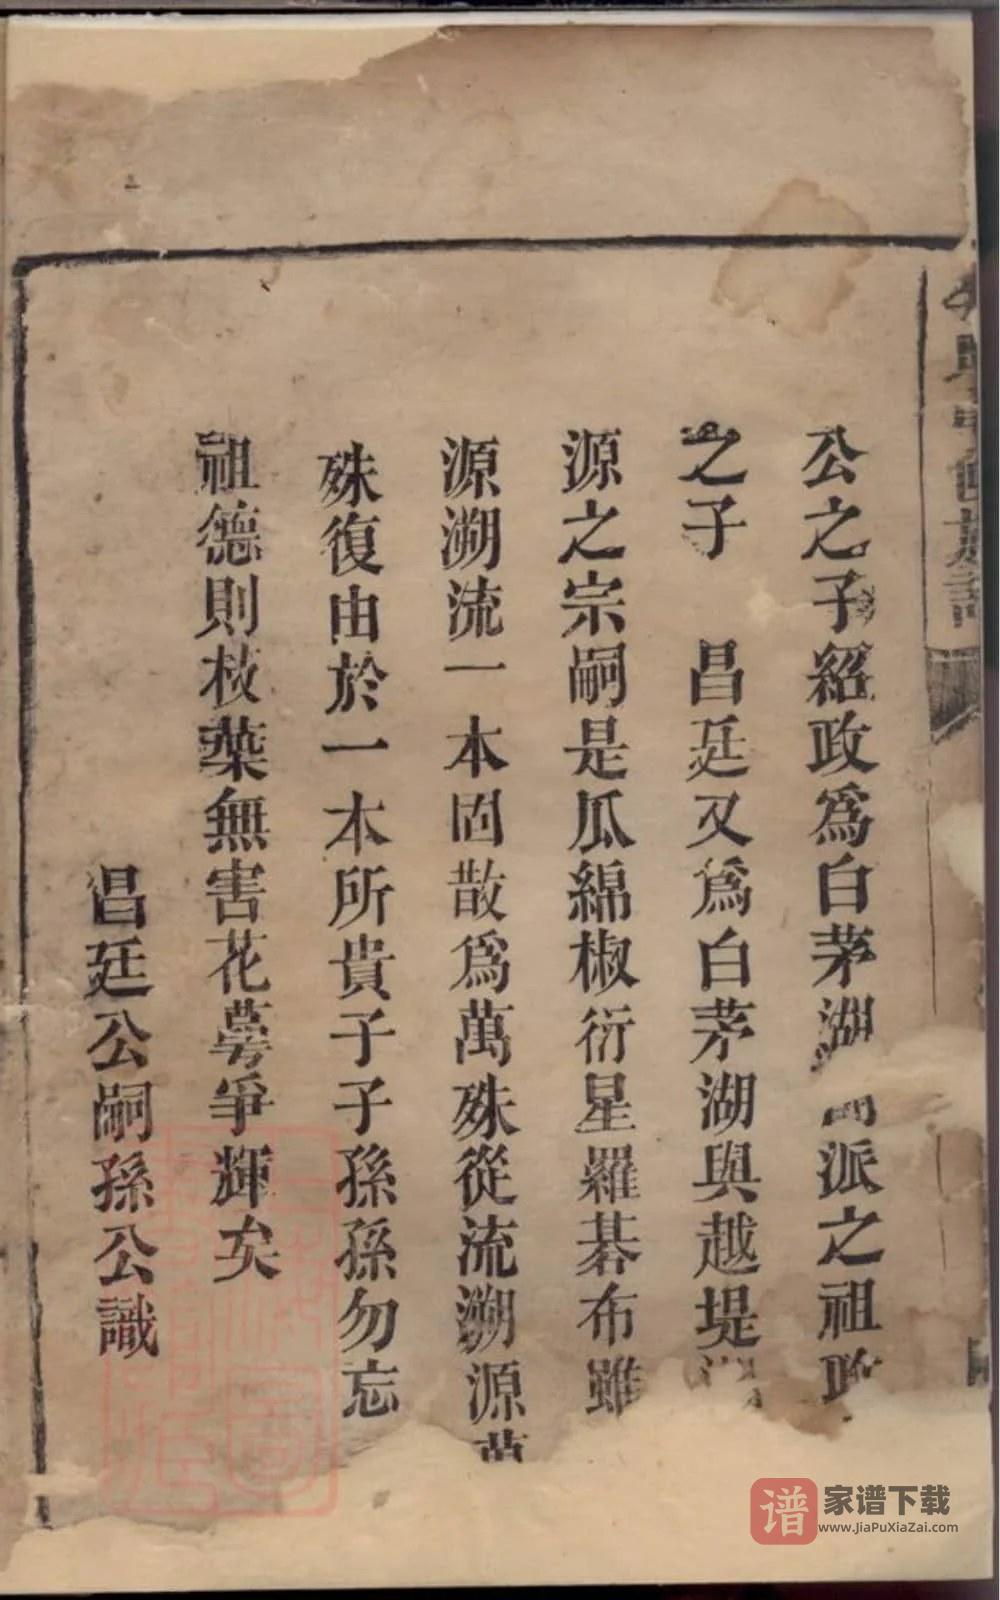 公之子紹政爲白茅湖派之祖政
之子　昌廷又爲白茅湖與越堤湖
源之宗嗣是瓜綿椒衍星羅碁布雖
源溯流一本固散爲萬殊從流溯源萬
殊復由於一本所貴子子孫孫勿忘
祖德則枝葉無害花萼爭輝矣
昌廷公嗣孫公識
家谱下载
www.JiaPuXiaZai.com
谱